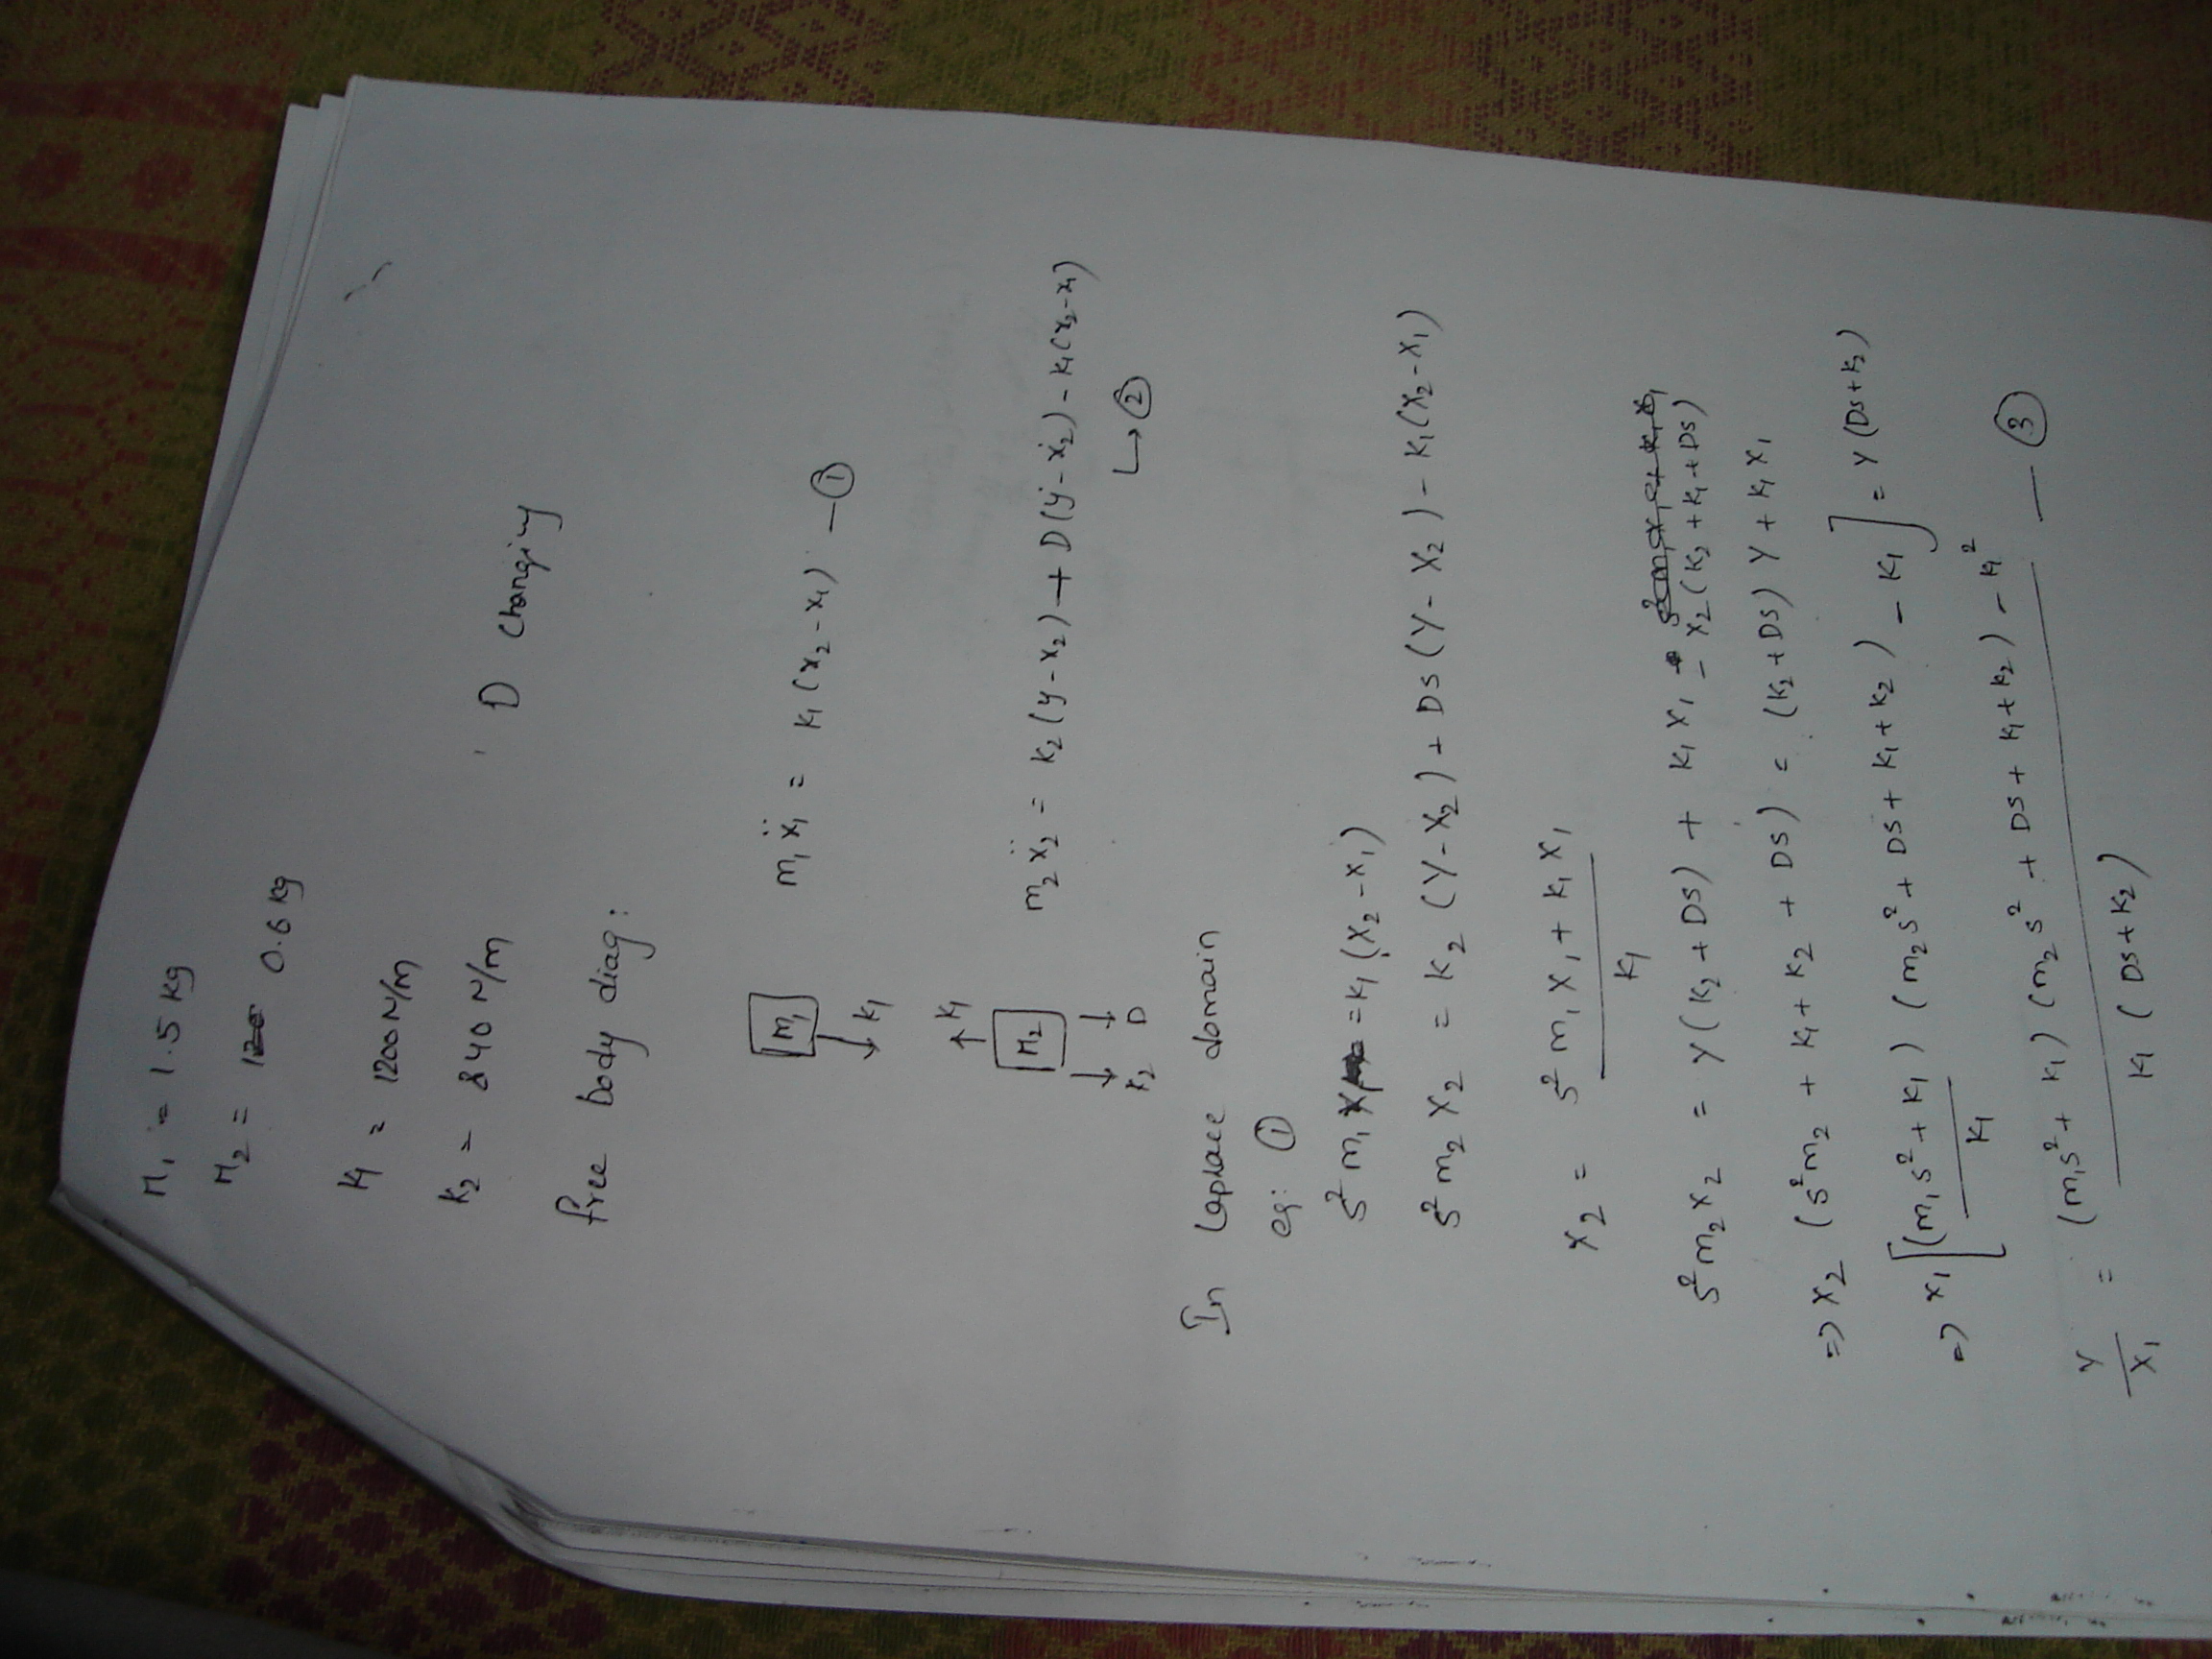 M₁ = 1.5 kg
M₂ = 0.6 kg
K₁ = 1200 N/m
K₂ = 840 N/m
D changing
free body diag:
M₁
K₁
m₁ẍ₁ = K₁(x₂ - x₁) — ①
K₁
M₂
K₂ D
m₂ẍ₂ = K₂(y - x₂) + D(ẏ - ẋ₂) - K₁(x₂ - x₁)
↳ ②
In Laplace domain
eq: ①
s² m₁ X₁ = K₁(X₂ - X₁)
s² m₂ X₂ = K₂ (Y - X₂) + DS (Y - X₂) - K₁(X₂ - X₁)
X₂ = (s² m₁ X₁ + K₁ X₁) / K₁
s² m₂ X₂ = Y(K₂ + DS) + K₁ X₁ - X₂(K₂ + K₁ + DS)
=> X₂ (s² m₂ + K₁ + K₂ + DS) = (K₂ + DS) Y + K₁ X₁
=> X₁ [(m₁s² + K₁)(m₂s² + DS + K₁ + K₂) / K₁ - K₁] = Y(DS + K₂)
Y / X₁ = ((m₁s² + K₁)(m₂s² + DS + K₁ + K₂) - K₁²) / (K₁(DS + K₂)) — ③